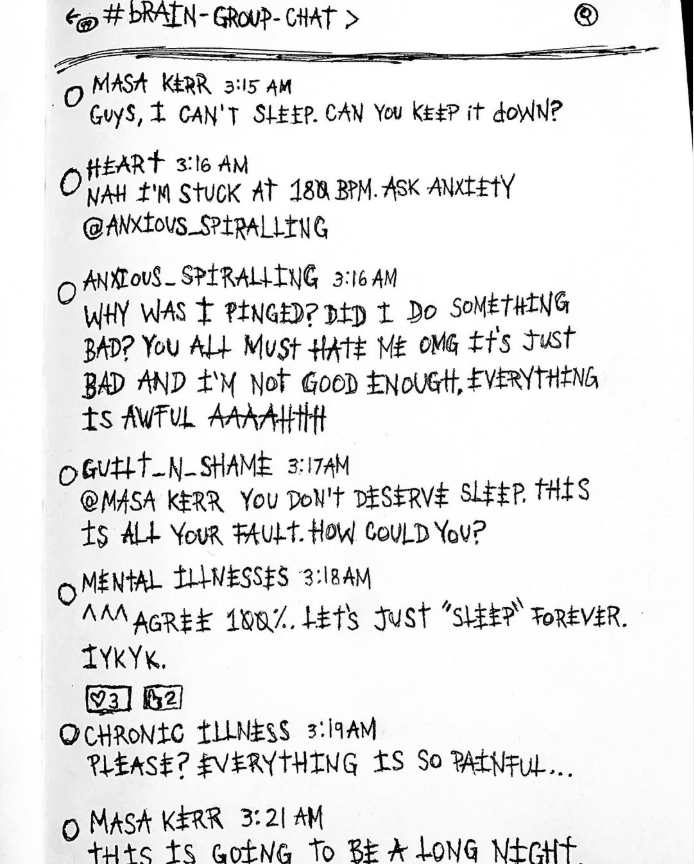 # BRAIN-GROUP-CHAT >
MASA KERR 3:15 AM
GUYS, I CAN'T SLEEP. CAN YOU KEEP IT DOWN?
HEART 3:16 AM
NAH I'M STUCK AT 180 BPM. ASK ANXIETY
@ANXIOUS_SPIRALLING
ANXIOUS_SPIRALLING 3:16 AM
WHY WAS I PINGED? DID I DO SOMETHING
BAD? YOU ALL MUST HATE ME OMG IT'S JUST
BAD AND I'M NOT GOOD ENOUGH, EVERYTHING
IS AWFUL AAAAHHH
GUILT_N_SHAME 3:17AM
@MASA KERR YOU DON'T DESERVE SLEEP. THIS
IS ALL YOUR FAULT. HOW COULD YOU?
MENTAL ILLNESSES 3:18AM
^^^ AGREE 100%. LET'S JUST "SLEEP" FOREVER.
IYKYK.
♡3 👍2
CHRONIC ILLNESS 3:19AM
PLEASE? EVERYTHING IS SO PAINFUL...
MASA KERR 3:21 AM
THIS IS GOING TO BE A LONG NIGHT.